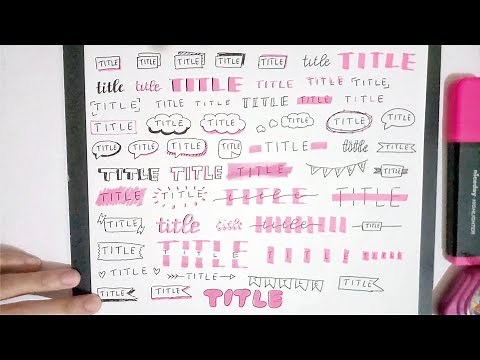 TITLE TITLE TITLE TITLE title TITLE
title title TITLE TITLE TITLE TITLE
TITLE TITLE TITLE TITLE TITLE TITLE
TITLE TITLE TITLE TITLE TITLE TITLE
TITLE TITLE TITLE TITLE TITLE title TITLE
TITLE TITLE TITLE TITLE
TITLE TITLE TITLE TITLE
TITLE title title title TITLE
TITLE TITLE TITLE TITLE
♡ TITLE ♡ TITLE TITLE
TITLE TITLE TITLE